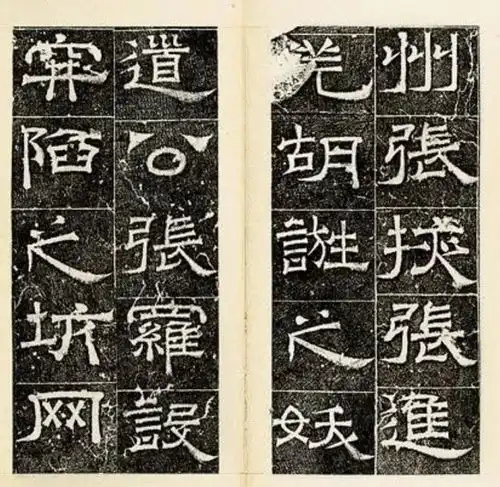 州張掖張進
羌胡誑之妖
道公張羅設
穽陷之坑网